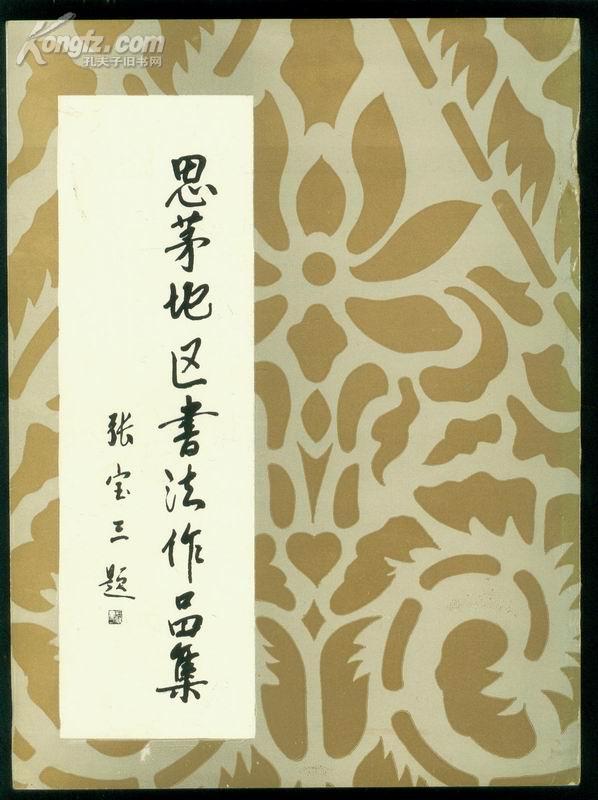 Kongfz.com
孔夫子旧书网
思茅地区书法作品集
张宝三题